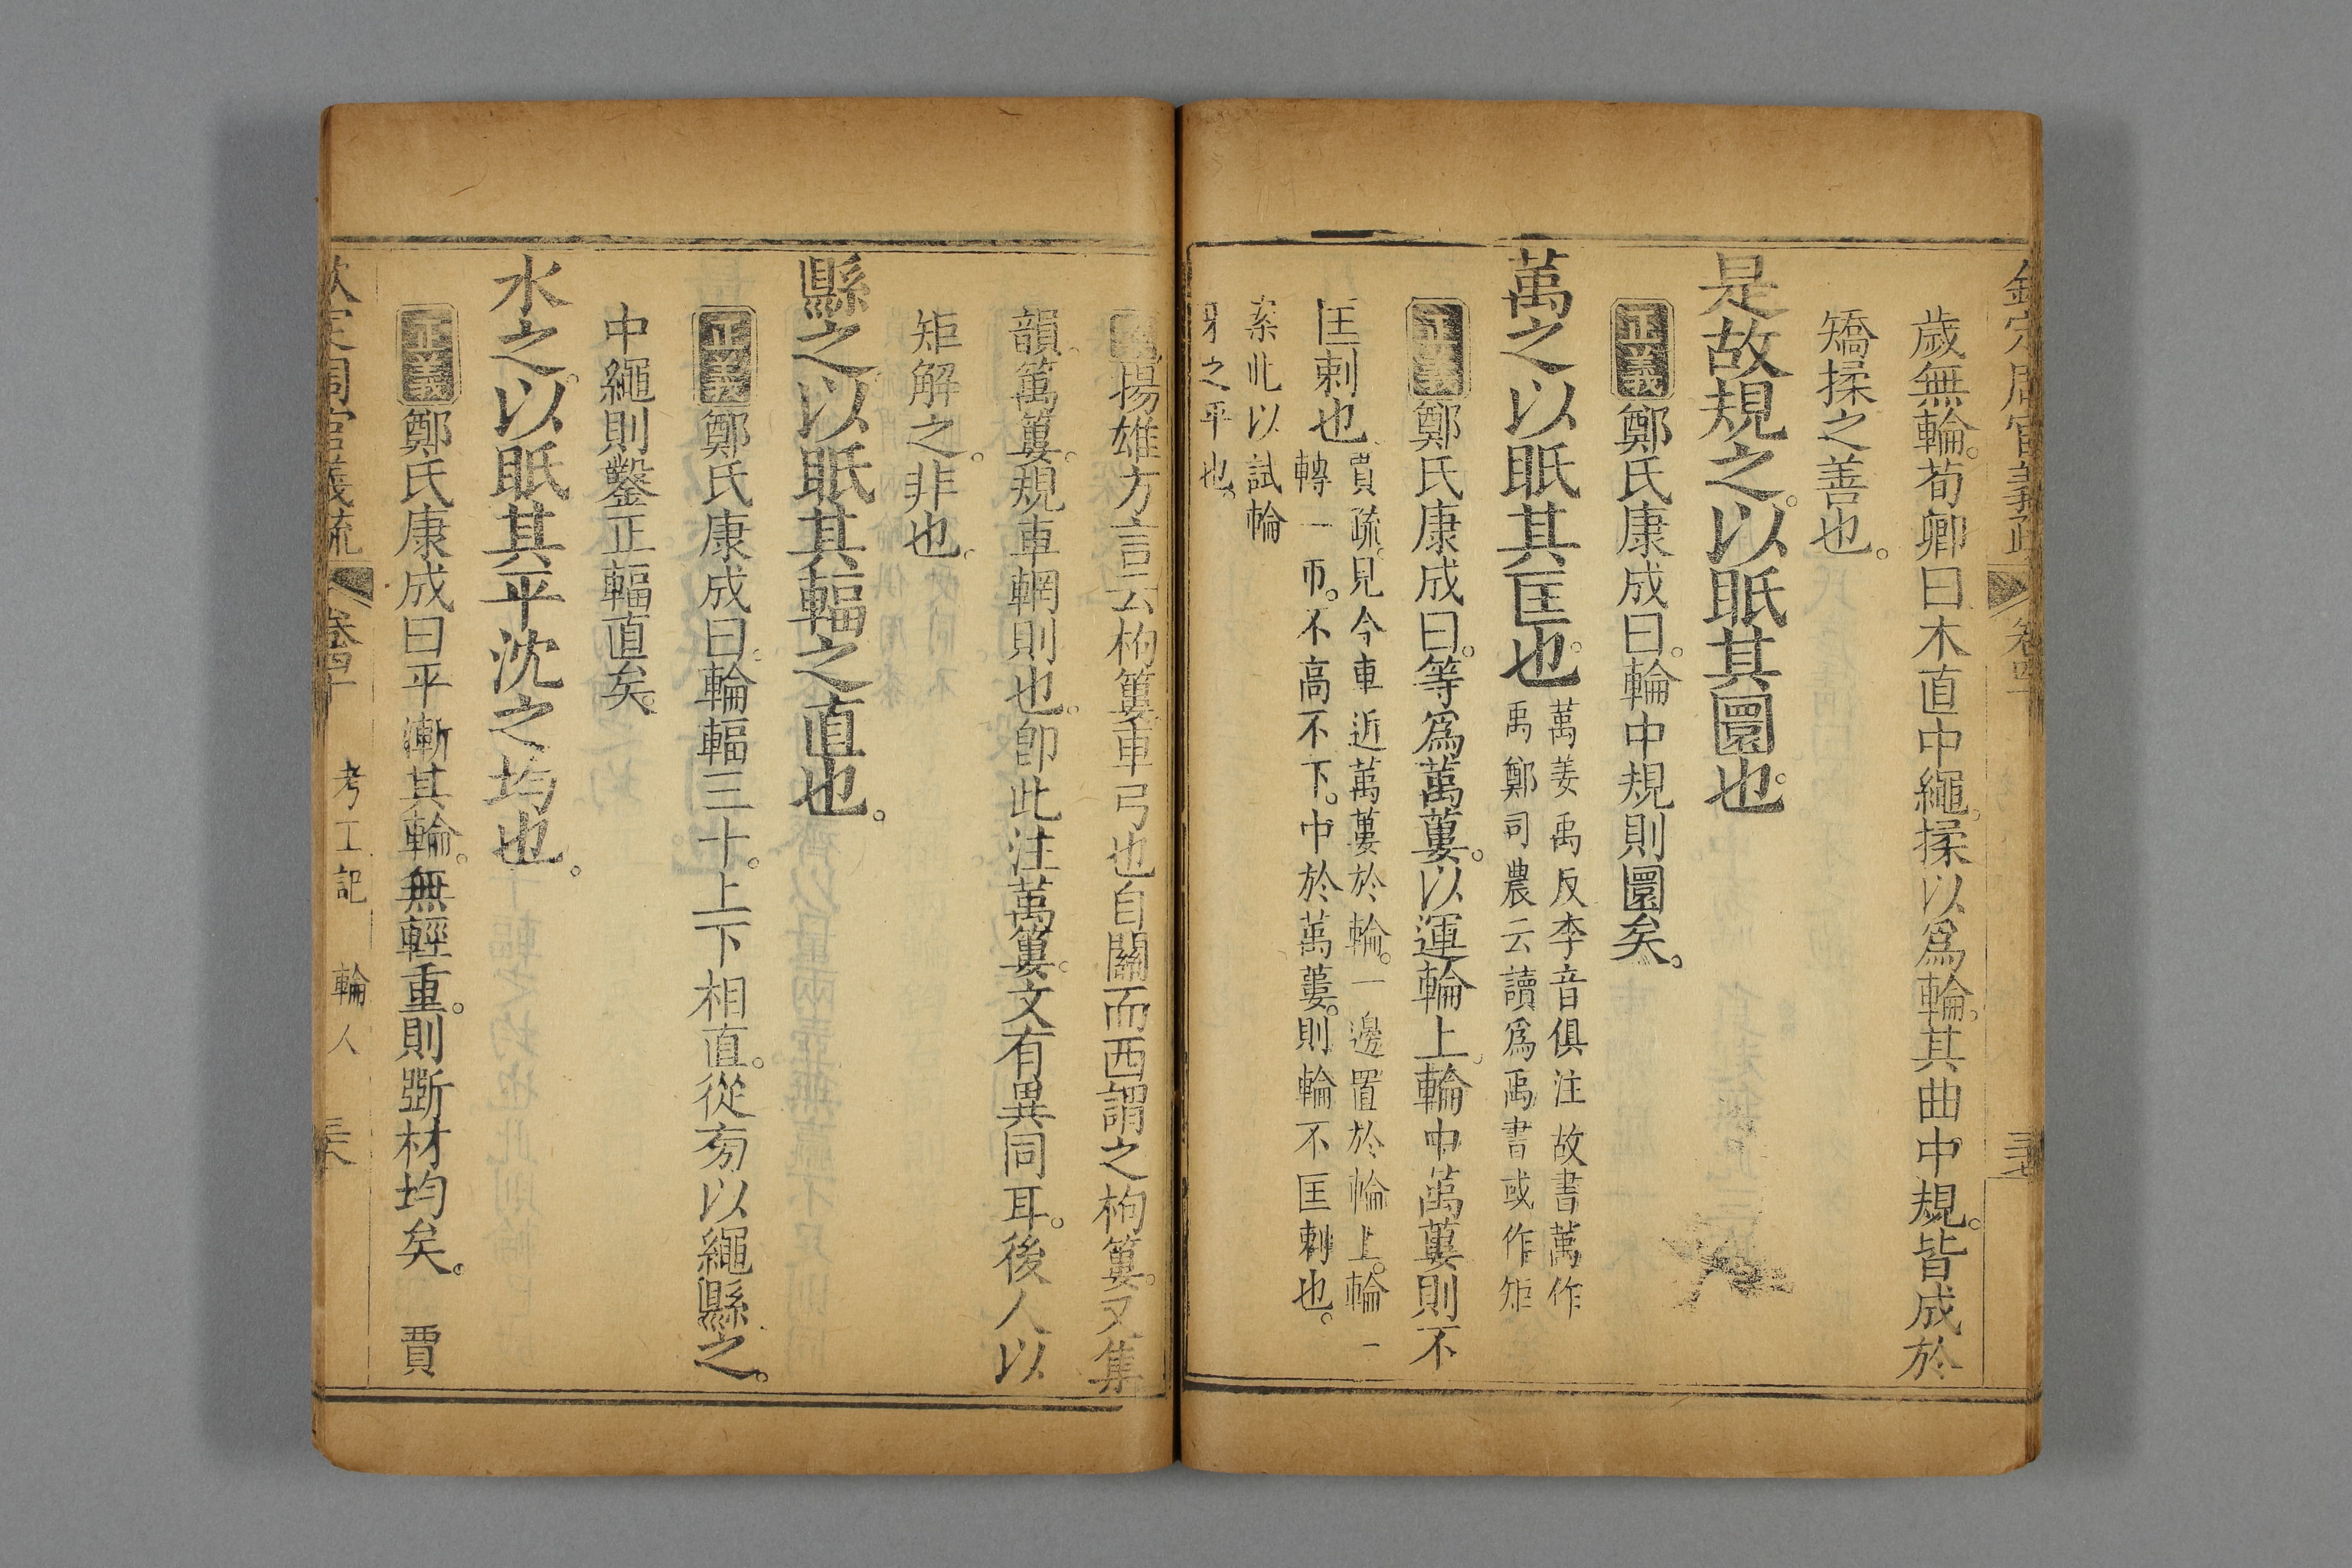 歲無輪。荀卿曰木直中繩。揉以爲輪。其曲中規。皆成於
矯揉之善也。
是故規之。以眡其圜也。
正義鄭氏康成曰。輪中規則圜矣。
萬之以眡其匡也。萬姜禹反李音俱注故書萬作
禹鄭司農云讀爲萭書或作矩
正義鄭氏康成曰。等爲萬蔞。以運輪上。輪中萬蔞則不
匡剌也。賈疏。見今車近萬蔞於輪。一邊置於輪上。輪一
轉一帀。不高不下。中於萬蔞。則輪不匡剌也。
案此以試輪
牙之平也。
揚雄方言云枸簍車弓也自關而西謂之枸簍。又集
韻萬簍。規車輞則也。卽此注萬簍。文有異同耳。後人以
矩解之。非也。
縣之。以眡其輻之直也。
正義鄭氏康成曰。輪輻三十。上下相直。從旁以繩縣之。
中繩則鑿正輻直矣。
水之。以眡其平沈之均也。
正義鄭氏康成曰平漸其輪。無輕重。則斲材均矣。 賈
考工記 輪人